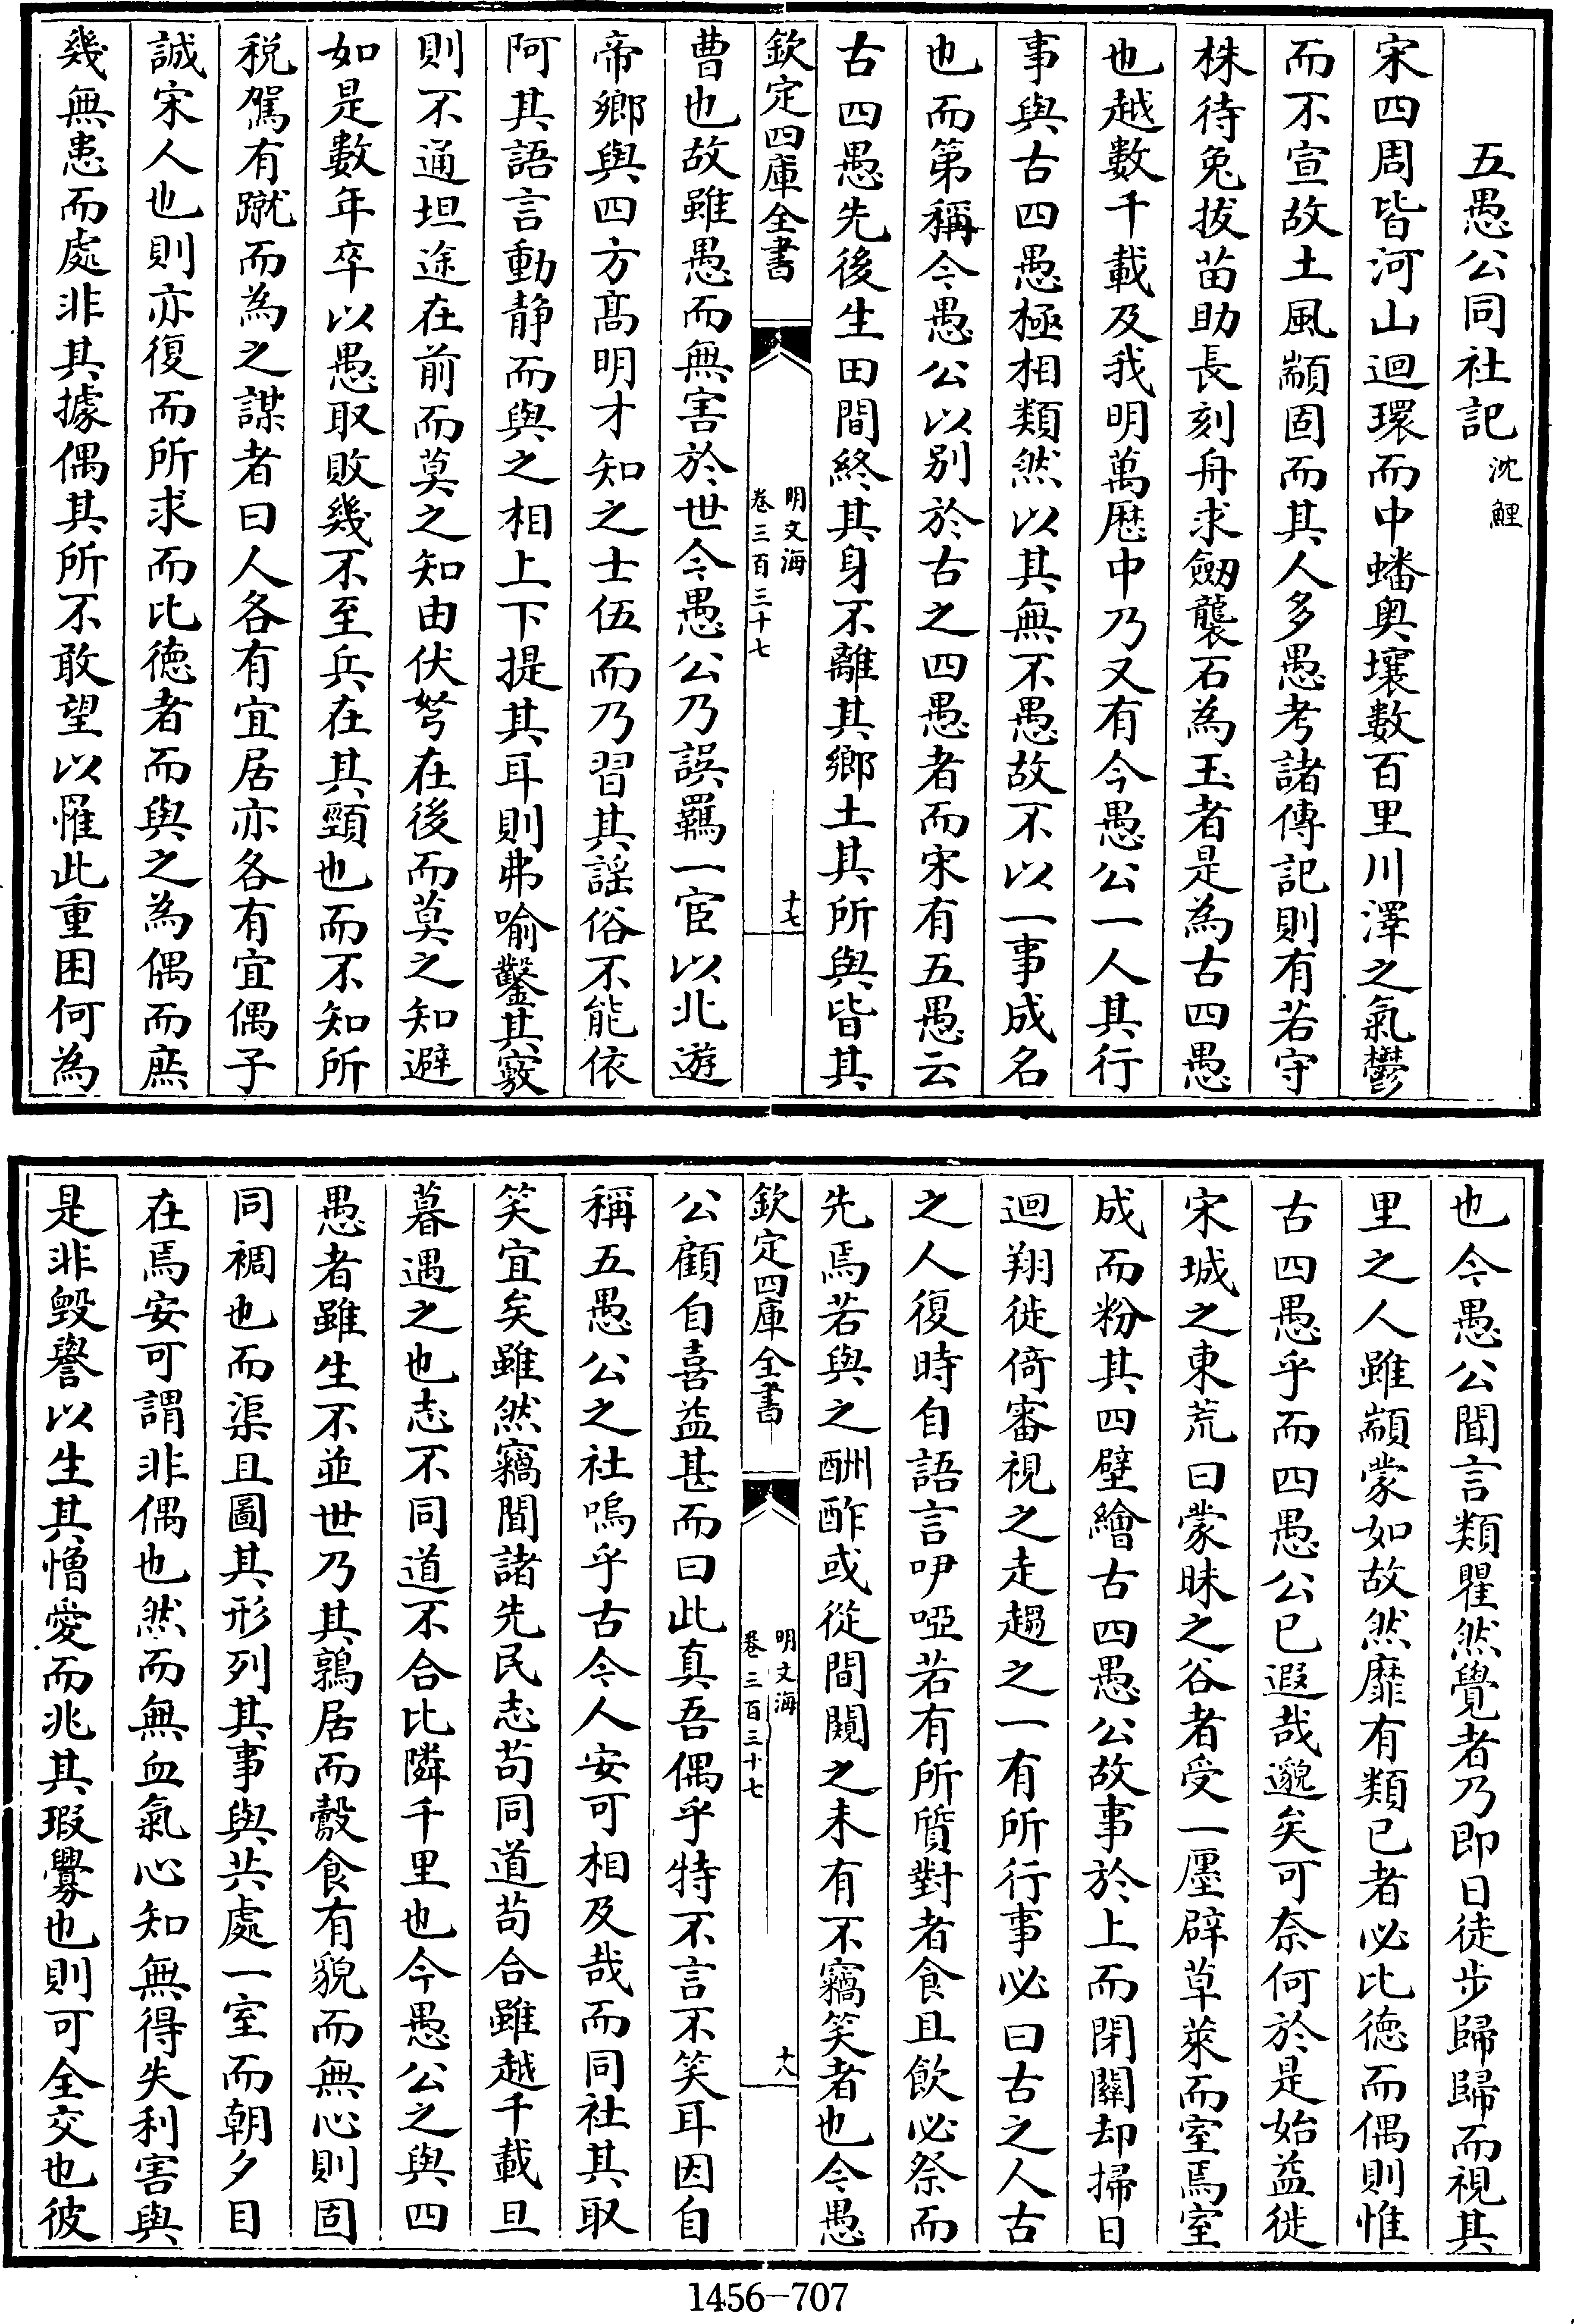 五愚公同社記沈鯉
宋四周皆河山迴環而中蟠奥壤數百里川澤之氣鬱
而不宣故土風顓固而其人多愚考諸傳記則有若守
株待兔拔苗助長刻舟求劒襲石為玉者是為古四愚
也越數千載及我明萬歴中乃又有今愚公一人其行
事與古四愚極相類然以其無不愚故不以一事成名
也而第稱今愚公以别於古之四愚者而宋有五愚云
古四愚先後生田間終其身不離其鄉土其所與皆其
欽定四庫全書
明文海
卷三百三十七
十七
曹也故雖愚而無害於世今愚公乃誤羈一宦以北遊
帝鄉與四方髙明才知之士伍而乃習其謡俗不能依
阿其語言動静而與之相上下提其耳則弗喻鑿其竅
則不通坦途在前而莫之知由伏弩在後而莫之知避
如是數年卒以愚取敗幾不至兵在其頸也而不知所
税駕有蹴而為之謀者曰人各有宜居亦各有宜偶子
誠宋人也則亦復而所求而比徳者而與之為偶而庶
幾無患而處非其據偶其所不敢望以罹此重困何為
也今愚公聞言類瞿然覺者乃即日徒步歸歸而視其
里之人雖顓蒙如故然靡有類已者必比徳而偶則惟
古四愚乎而四愚公已遐哉邈矣可奈何於是始益徙
宋城之東荒曰蒙昧之谷者受一㕓辟草萊而室焉室
成而粉其四壁繪古四愚公故事於上而閉關却掃日
迴翔徙倚審視之走趨之一有所行事必曰古之人古
之人復時自語言咿啞若有所質對者食且飲必祭而
先焉若與之酬酢或從間闚之未有不竊笑者也今愚
欽定四庫全書
明文海
卷三百三十七
十八
公顧自喜益甚而曰此真吾偶乎特不言不笑耳因自
稱五愚公之社嗚乎古今人安可相及哉而同社其取
笑宜矣雖然竊聞諸先民志茍同道茍合雖越千載旦
暮遇之也志不同道不合比隣千里也今愚公之與四
愚者雖生不並世乃其鶉居而鷇食有貌而無心則固
同禂也而渠且圖其形列其事與共處一室而朝夕目
在焉安可謂非偶也然而無血氣心知無得失利害與
是非毁譽以生其憎愛而兆其瑕釁也則可全交也彼
1456—707